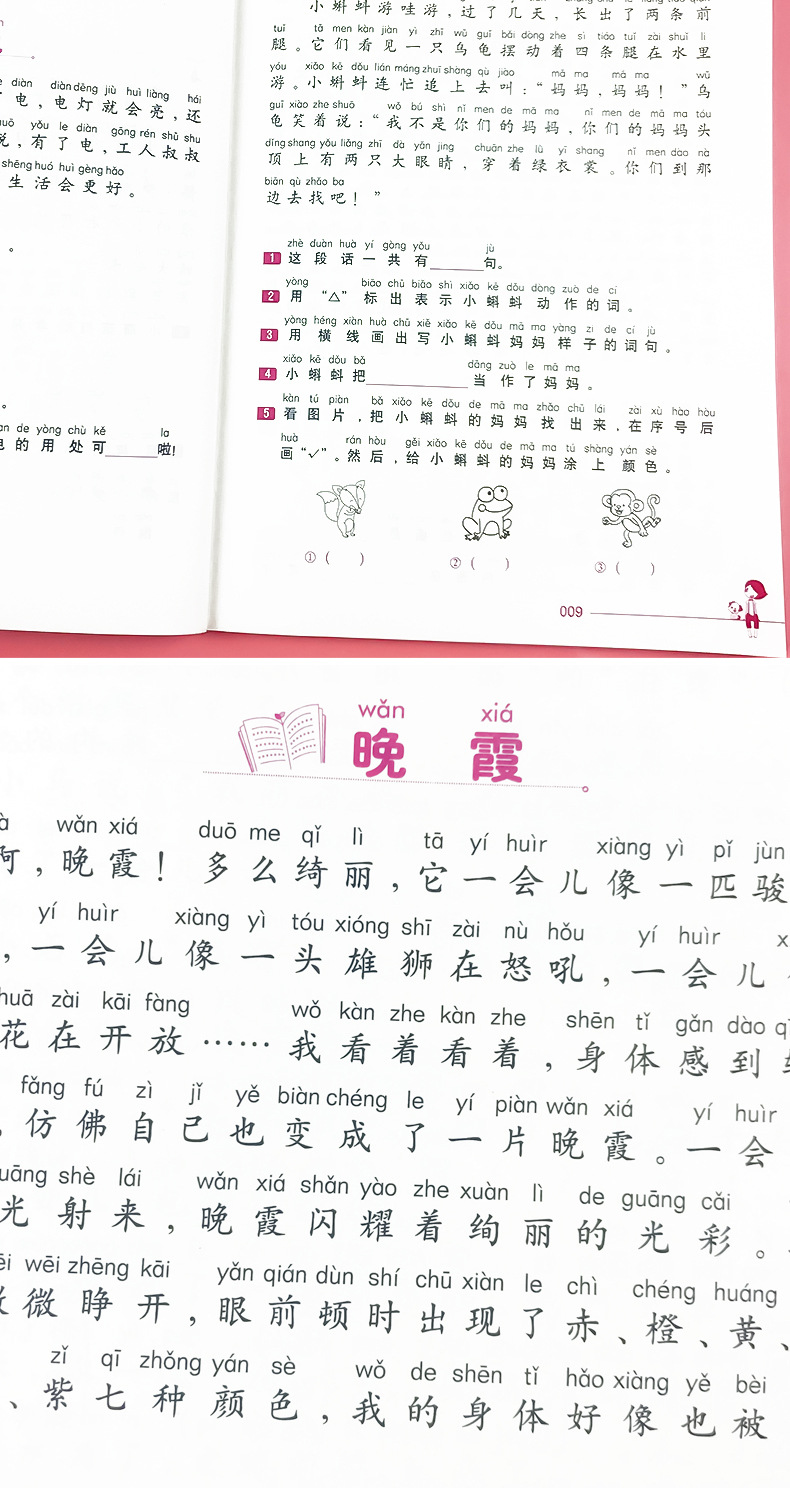 diàn diàn dēng jiù huì liàng hái
电，电灯就会亮，还
yǒu le diàn gōng rén shū shu
说，有了电，工人叔叔
shēng huó huì gèng hǎo
生活会更好。
de yòng chù kě la
的用处可______啦！
小蝌蚪游哇游，过了几天，长出了两条前
tuǐ tā men kàn jiàn yì zhī wū guī bǎi dòng zhe sì tiáo tuǐ zài shuǐ lǐ
腿。它们看见一只乌龟摆动着四条腿在水里
yóu xiǎo kē dǒu lián máng zhuī shàng qù jiào mā ma mā ma wū
游。小蝌蚪连忙追上去叫：“妈妈，妈妈！”乌
guī xiào zhe shuō wǒ bú shì nǐ men de mā ma nǐ men de mā ma tóu
龟笑着说：“我不是你们的妈妈，你们的妈妈头
dǐng shang yǒu liǎng zhī dà yǎn jing chuān zhe lǜ yī shang nǐ men dào nà
顶上有两只大眼睛，穿着绿衣裳。你们到那
biān qù zhǎo ba
边去找吧！”
zhè duàn huà yí gòng yǒu jù
1 这段话一共有______句。
yòng biāo chū biǎo shì xiǎo kē dǒu dòng zuò de cí
2 用“△”标出表示小蝌蚪动作的词。
yòng héng xiàn huà chū xiě xiǎo kē dǒu mā ma yàng zi de cí jù
3 用横线画出写小蝌蚪妈妈样子的词句。
xiǎo kē dǒu bǎ dàng zuò le mā ma
4 小蝌蚪把____________当作了妈妈。
kàn tú piàn bǎ xiǎo kē dǒu de mā ma zhǎo chū lái zài xù hào hòu
5 看图片，把小蝌蚪的妈妈找出来，在序号后
huà rán hòu gěi xiǎo kē dǒu de mā ma tú shàng yán sè
画“✓”。然后，给小蝌蚪的妈妈涂上颜色。
①（ ） ②（ ） ③（ ）
009
wǎn xiá
晚霞
wǎn xiá duō me qǐ lì tā yí huìr xiàng yì pǐ jùn
啊，晚霞！多么绮丽，它一会儿像一匹骏
yí huìr xiàng yì tóu xióng shī zài nù hǒu yí huìr
，一会儿像一头雄狮在怒吼，一会儿
huā zài kāi fàng wǒ kàn zhe kàn zhe shēn tǐ gǎn dào
花在开放……我看着看着，身体感到
fǎng fú zì jǐ yě biàn chéng le yí piàn wǎn xiá yí huìr
，仿佛自己也变成了一片晚霞。一会
guāng shè lái wǎn xiá shǎn yào zhe xuàn lì de guāng cǎi
光射来，晚霞闪耀着绚丽的光彩。
wēi wēi zhēng kāi yǎn qián dùn shí chū xiàn le chì chéng huáng
微微睁开，眼前顿时出现了赤、橙、黄、
zǐ qī zhǒng yán sè wǒ de shēn tǐ hǎo xiàng yě bèi
、紫七种颜色，我的身体好像也被